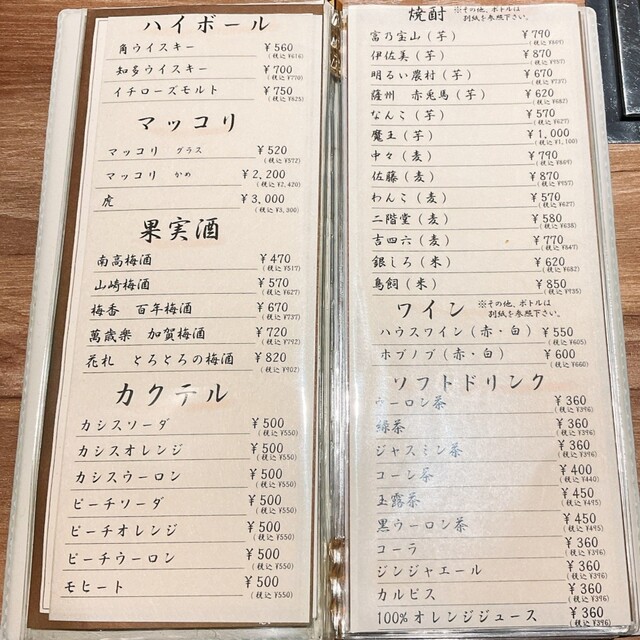 ハイボール
角ウイスキー ¥560
(税込 ¥616)
知多ウイスキー ¥700
(税込 ¥770)
イチローズモルト ¥750
(税込 ¥825)
マッコリ
マッコリ グラス ¥520
(税込 ¥572)
マッコリ かめ ¥2,200
(税込 ¥2,420)
虎 ¥3,000
(税込 ¥3,300)
果実酒
南高梅酒 ¥470
(税込 ¥517)
山崎梅酒 ¥570
(税込 ¥627)
梅香 百年梅酒 ¥670
(税込 ¥737)
萬歳楽 加賀梅酒 ¥720
(税込 ¥792)
花札 とろとろの梅酒 ¥820
(税込 ¥902)
カクテル
カシスソーダ ¥500
(税込 ¥550)
カシスオレンジ ¥500
(税込 ¥550)
カシスウーロン ¥500
(税込 ¥550)
ピーチソーダ ¥500
(税込 ¥550)
ピーチオレンジ ¥500
(税込 ¥550)
ピーチウーロン ¥500
(税込 ¥550)
モヒート ¥500
(税込 ¥550)
焼酎 ※その他、ボトルは
別紙を参照下さい。
富乃宝山(芋) ¥790
(税込 ¥869)
伊佐美(芋) ¥870
(税込 ¥957)
明るい農村(芋) ¥670
(税込 ¥737)
薩州 赤兎馬(芋) ¥620
(税込 ¥682)
なんこ(芋) ¥570
(税込 ¥627)
魔王(芋) ¥1,000
(税込 ¥1,100)
中々(麦) ¥790
(税込 ¥869)
佐藤(麦) ¥870
(税込 ¥957)
わんこ(麦) ¥570
(税込 ¥627)
二階堂(麦) ¥580
(税込 ¥638)
吉四六(麦) ¥770
(税込 ¥847)
銀しろ(米) ¥620
(税込 ¥682)
鳥飼(米) ¥850
(税込 ¥935)
ワイン ※その他、ボトルは
別紙を参照下さい。
ハウスワイン(赤・白) ¥550
(税込 ¥605)
ホブノブ(赤・白) ¥600
(税込 ¥660)
ソフトドリンク
ウーロン茶 ¥360
(税込 ¥396)
緑茶 ¥360
(税込 ¥396)
ジャスミン茶 ¥360
(税込 ¥396)
コーン茶 ¥400
(税込 ¥440)
玉露茶 ¥450
(税込 ¥495)
黒ウーロン茶 ¥450
(税込 ¥495)
コーラ ¥360
(税込 ¥396)
ジンジャエール ¥360
(税込 ¥396)
カルピス ¥360
(税込 ¥396)
100%オレンジジュース ¥360
(税込 ¥396)